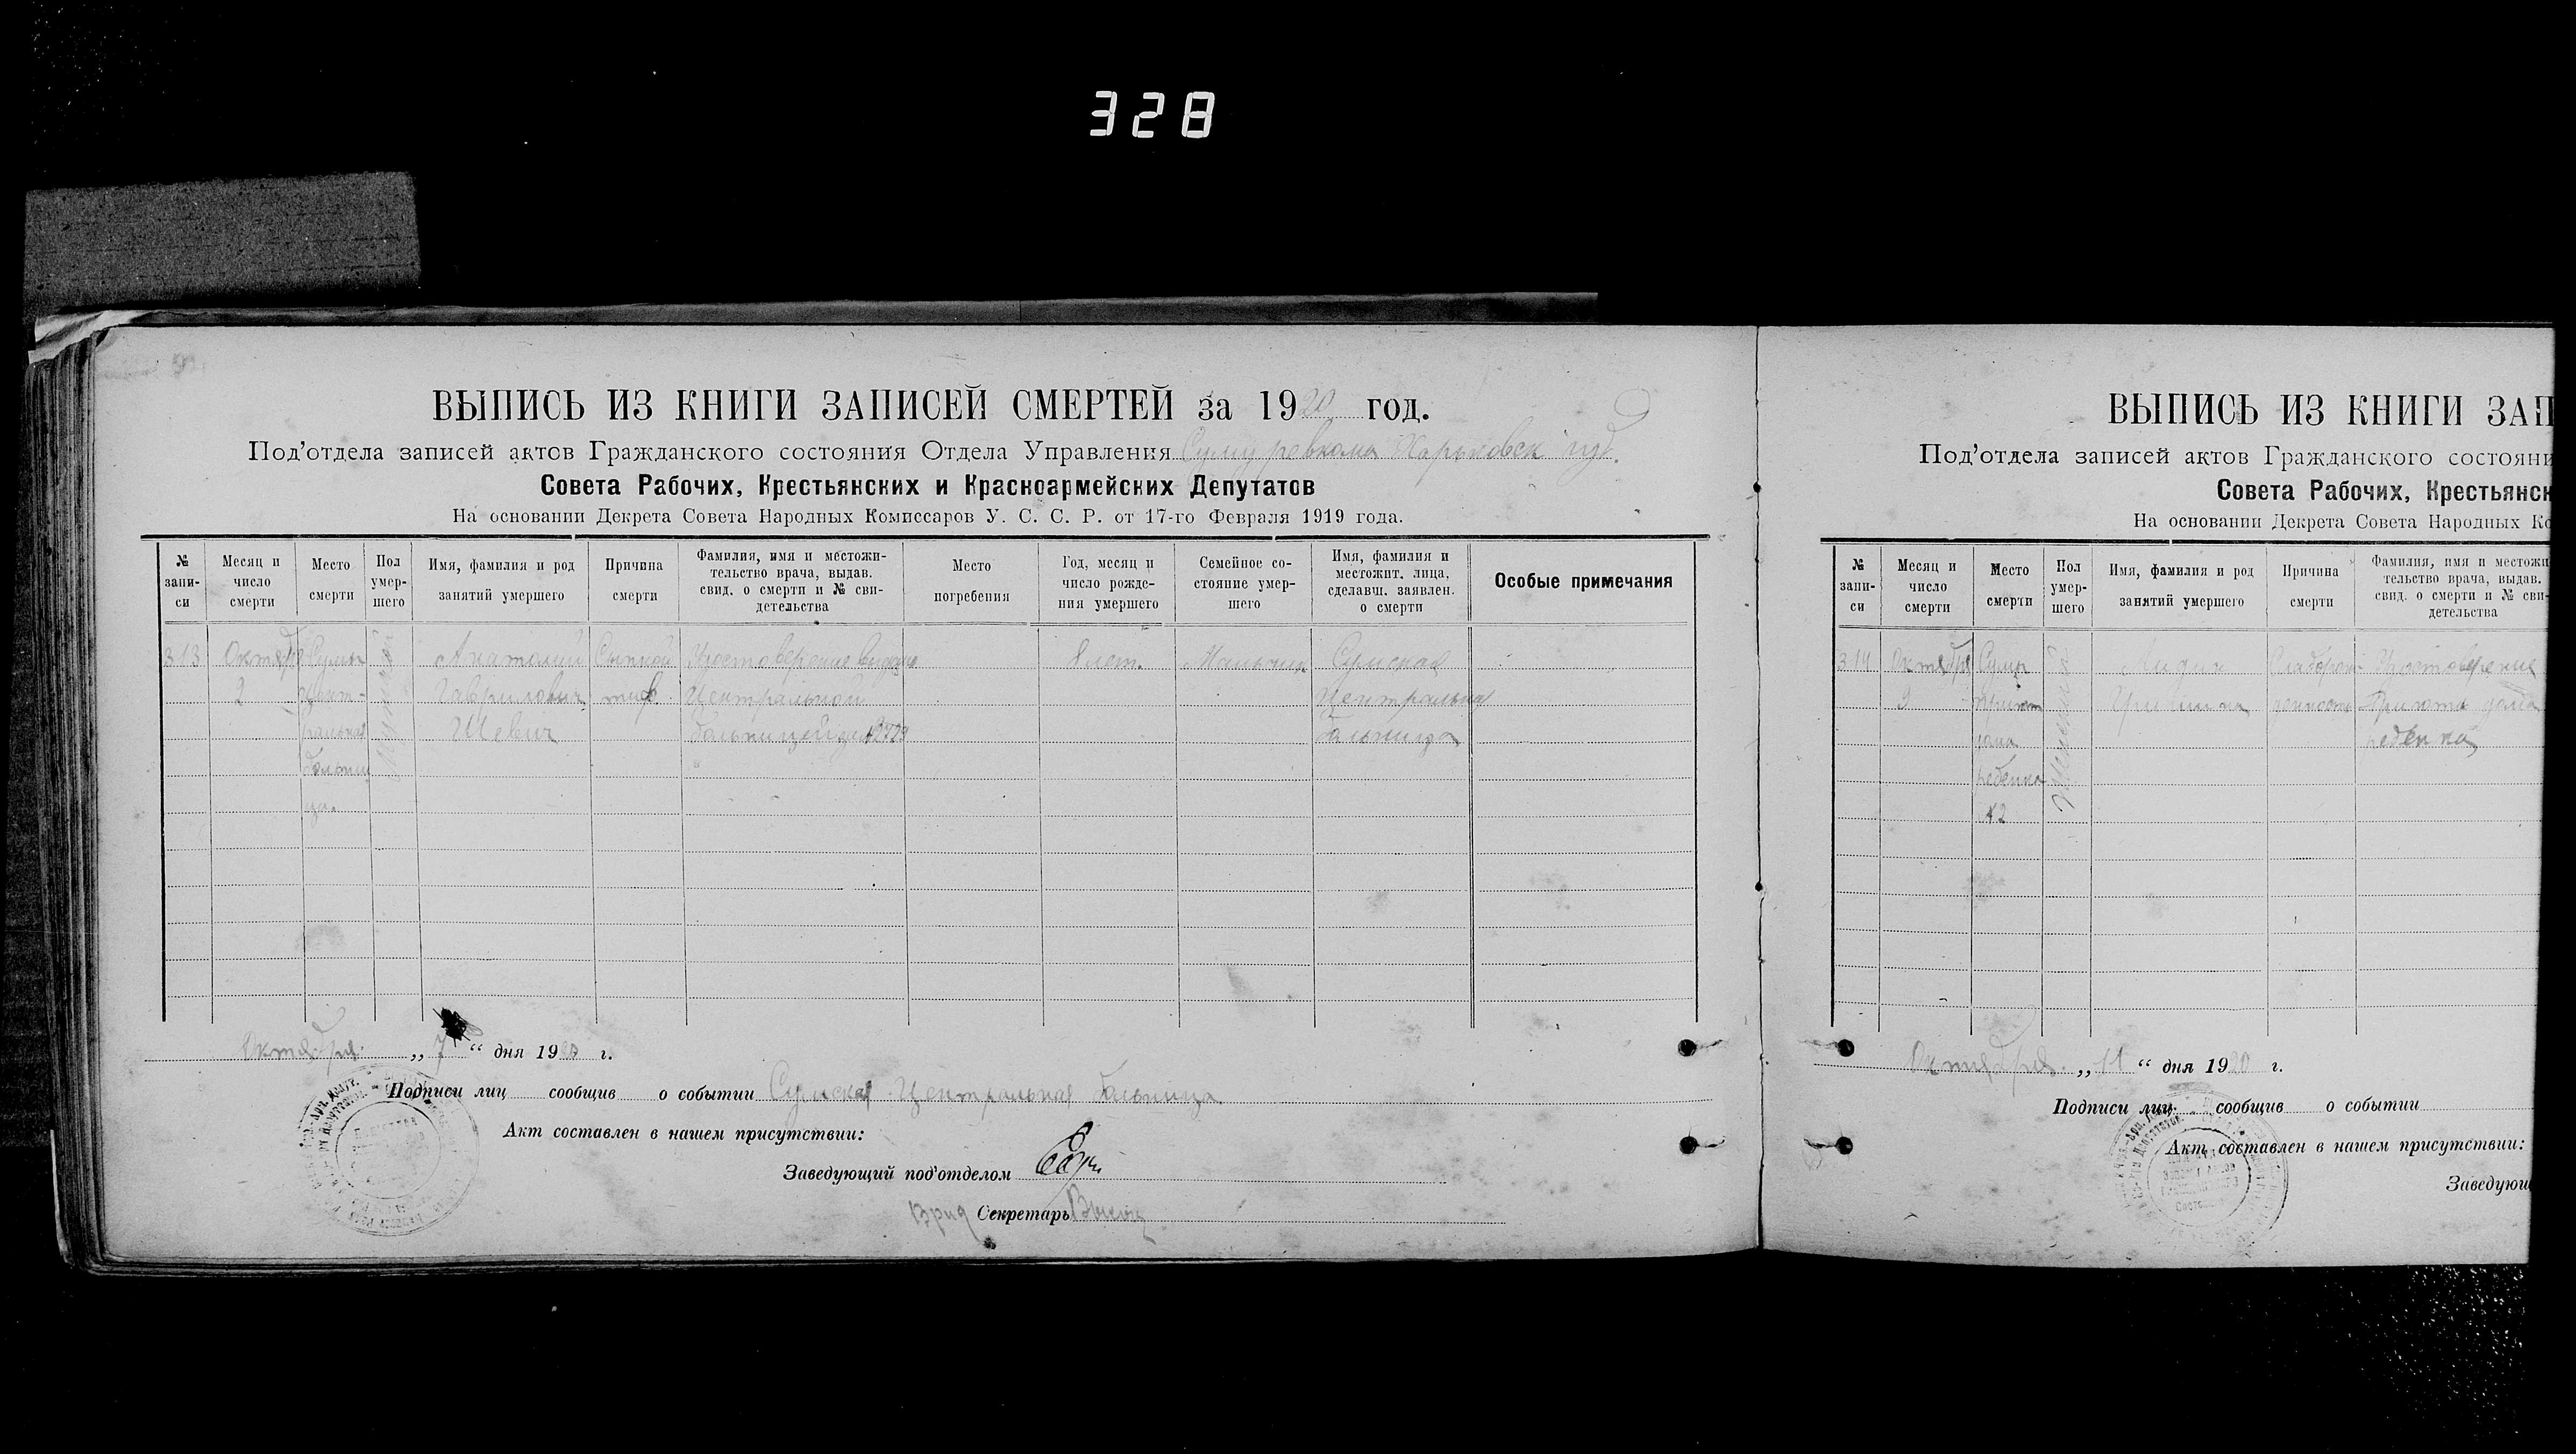 328
ВЫПИСЬ ИЗ КНИГИ ЗАПИСЕЙ СМЕРТЕЙ за 1920 год.
Под'отдела записей актов Гражданского состояния Отдела Управления Сумуревкома Харьковск губ.
Совета Рабочих, Крестьянских и Красноармейских Депутатов
На основании Декрета Совета Народных Комиссаров У. С. С. Р. от 17-го Февраля 1919 года.
№ запи-
си
Месяц и
число
смерти
Место
смерти
Пол
умер-
шего
Имя, фамилия и род
занятий умершего
Причина
смерти
Фамилия, имя и местожи-
тельство врача, выдав.
свид. о смерти и № сви-
детельства
Место
погребения
Год, месяц и
число рожде-
ния умершего
Семейное со-
стояние умер-
шего
Имя, фамилия и
местожит. лица,
сделавш. заявлен.
о смерти
Особые примечания
313
Октября
2
Сумы
Цент-
ральная
больни
ца.
Мужской
Анатолий
Гаврилович
Шевич
Сыпной
тиф
Удостоверение выдано
Центральной
больницей за №2729
8 лет.
Мальчик
Сумская
Центральная
больница
Октября „ 7 “ дня 1920 г.
Подписи лиц сообщив о событии Сумская Центральная больница
Акт составлен в нашем присутствии:
Заведующий под'отделом
Врид Секретарь
ВЫПИСЬ ИЗ КНИГИ ЗАП
Под'отдела записей актов Гражданского состояни
Совета Рабочих, Крестьянск
На основании Декрета Совета Народных Ко
№ запи-
си
Месяц и
число
смерти
Место
смерти
Пол
умер-
шего
Имя, фамилия и род
занятий умершего
Причина
смерти
Фамилия, имя и местожи
тельство врача, выдав.
свид. о смерти и № сви-
детельства
314
Октября
9
Сумы
приют
дома
ребенка
№2
Женский
Лидия
Гришина
Слаборож-
денность
Удостоверение
Приюта дома
ребенка
Октября „ 11 “ дня 1920 г.
Подписи лиц сообщив о событии
Акт составлен в нашем присутствии:
Заведующ